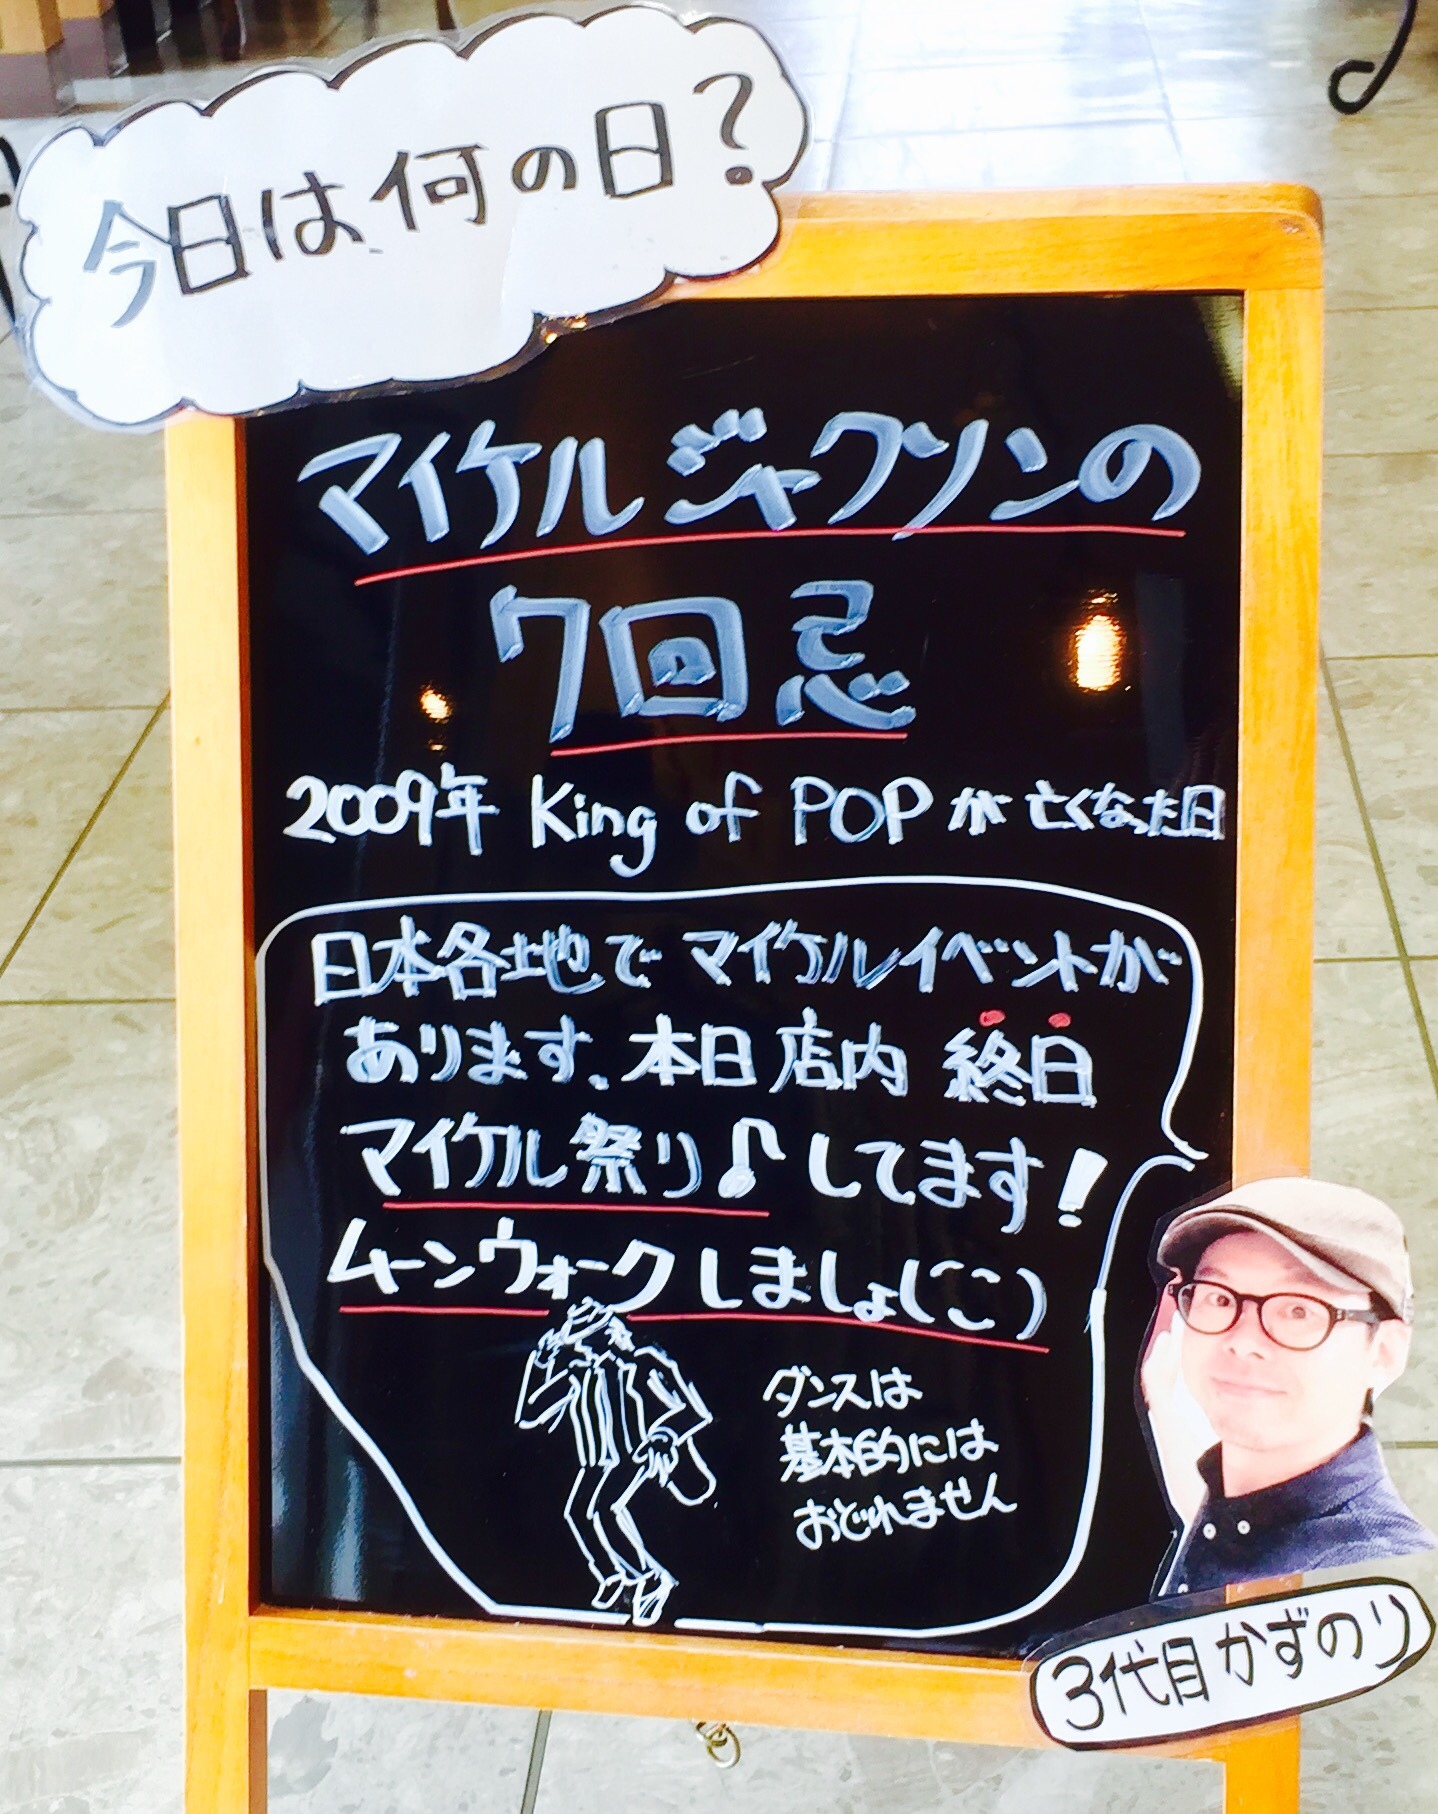 今日は何の日?
マイケルジャクソンの
7回忌
2009年 King of POPが亡くなった日
日本各地でマイケルイベントが
あります、本日店内 終日
マイケル祭り♪してます!
ムーンウォークしましょ(ニコ)
ダンスは
基本的には
おどれません
3代目かずのり